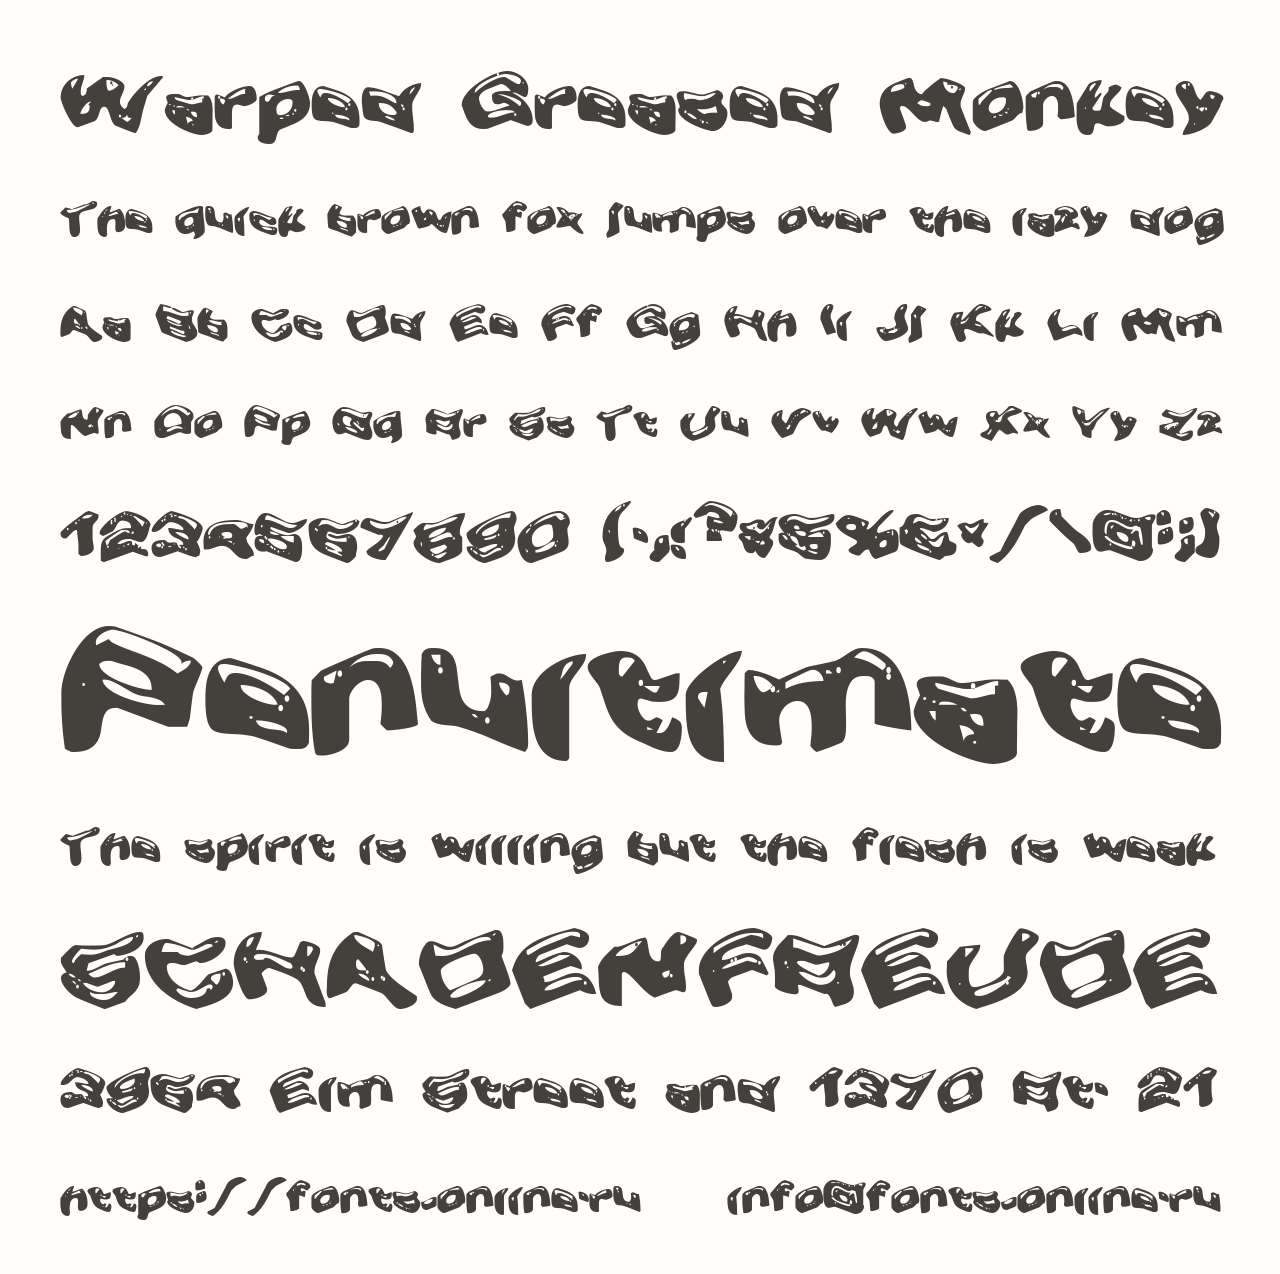 Warped Greased Monkey
The quick brown fox jumps over the lazy dog
Aa Bb Cc Dd Ee Ff Gg Hh Ii Jj Kk Ll Mm
Nn Oo Pp Qq Rr Ss Tt Uu Vv Ww Xx Yy Zz
1234567890 (.,!?#$%&*/\@:;)
Penultimate
The spirit is willing but the flesh is weak
SCHADENFREUDE
3964 Elm Street and 1370 Rt. 21
https://fonts-online.ru info@fonts-online.ru